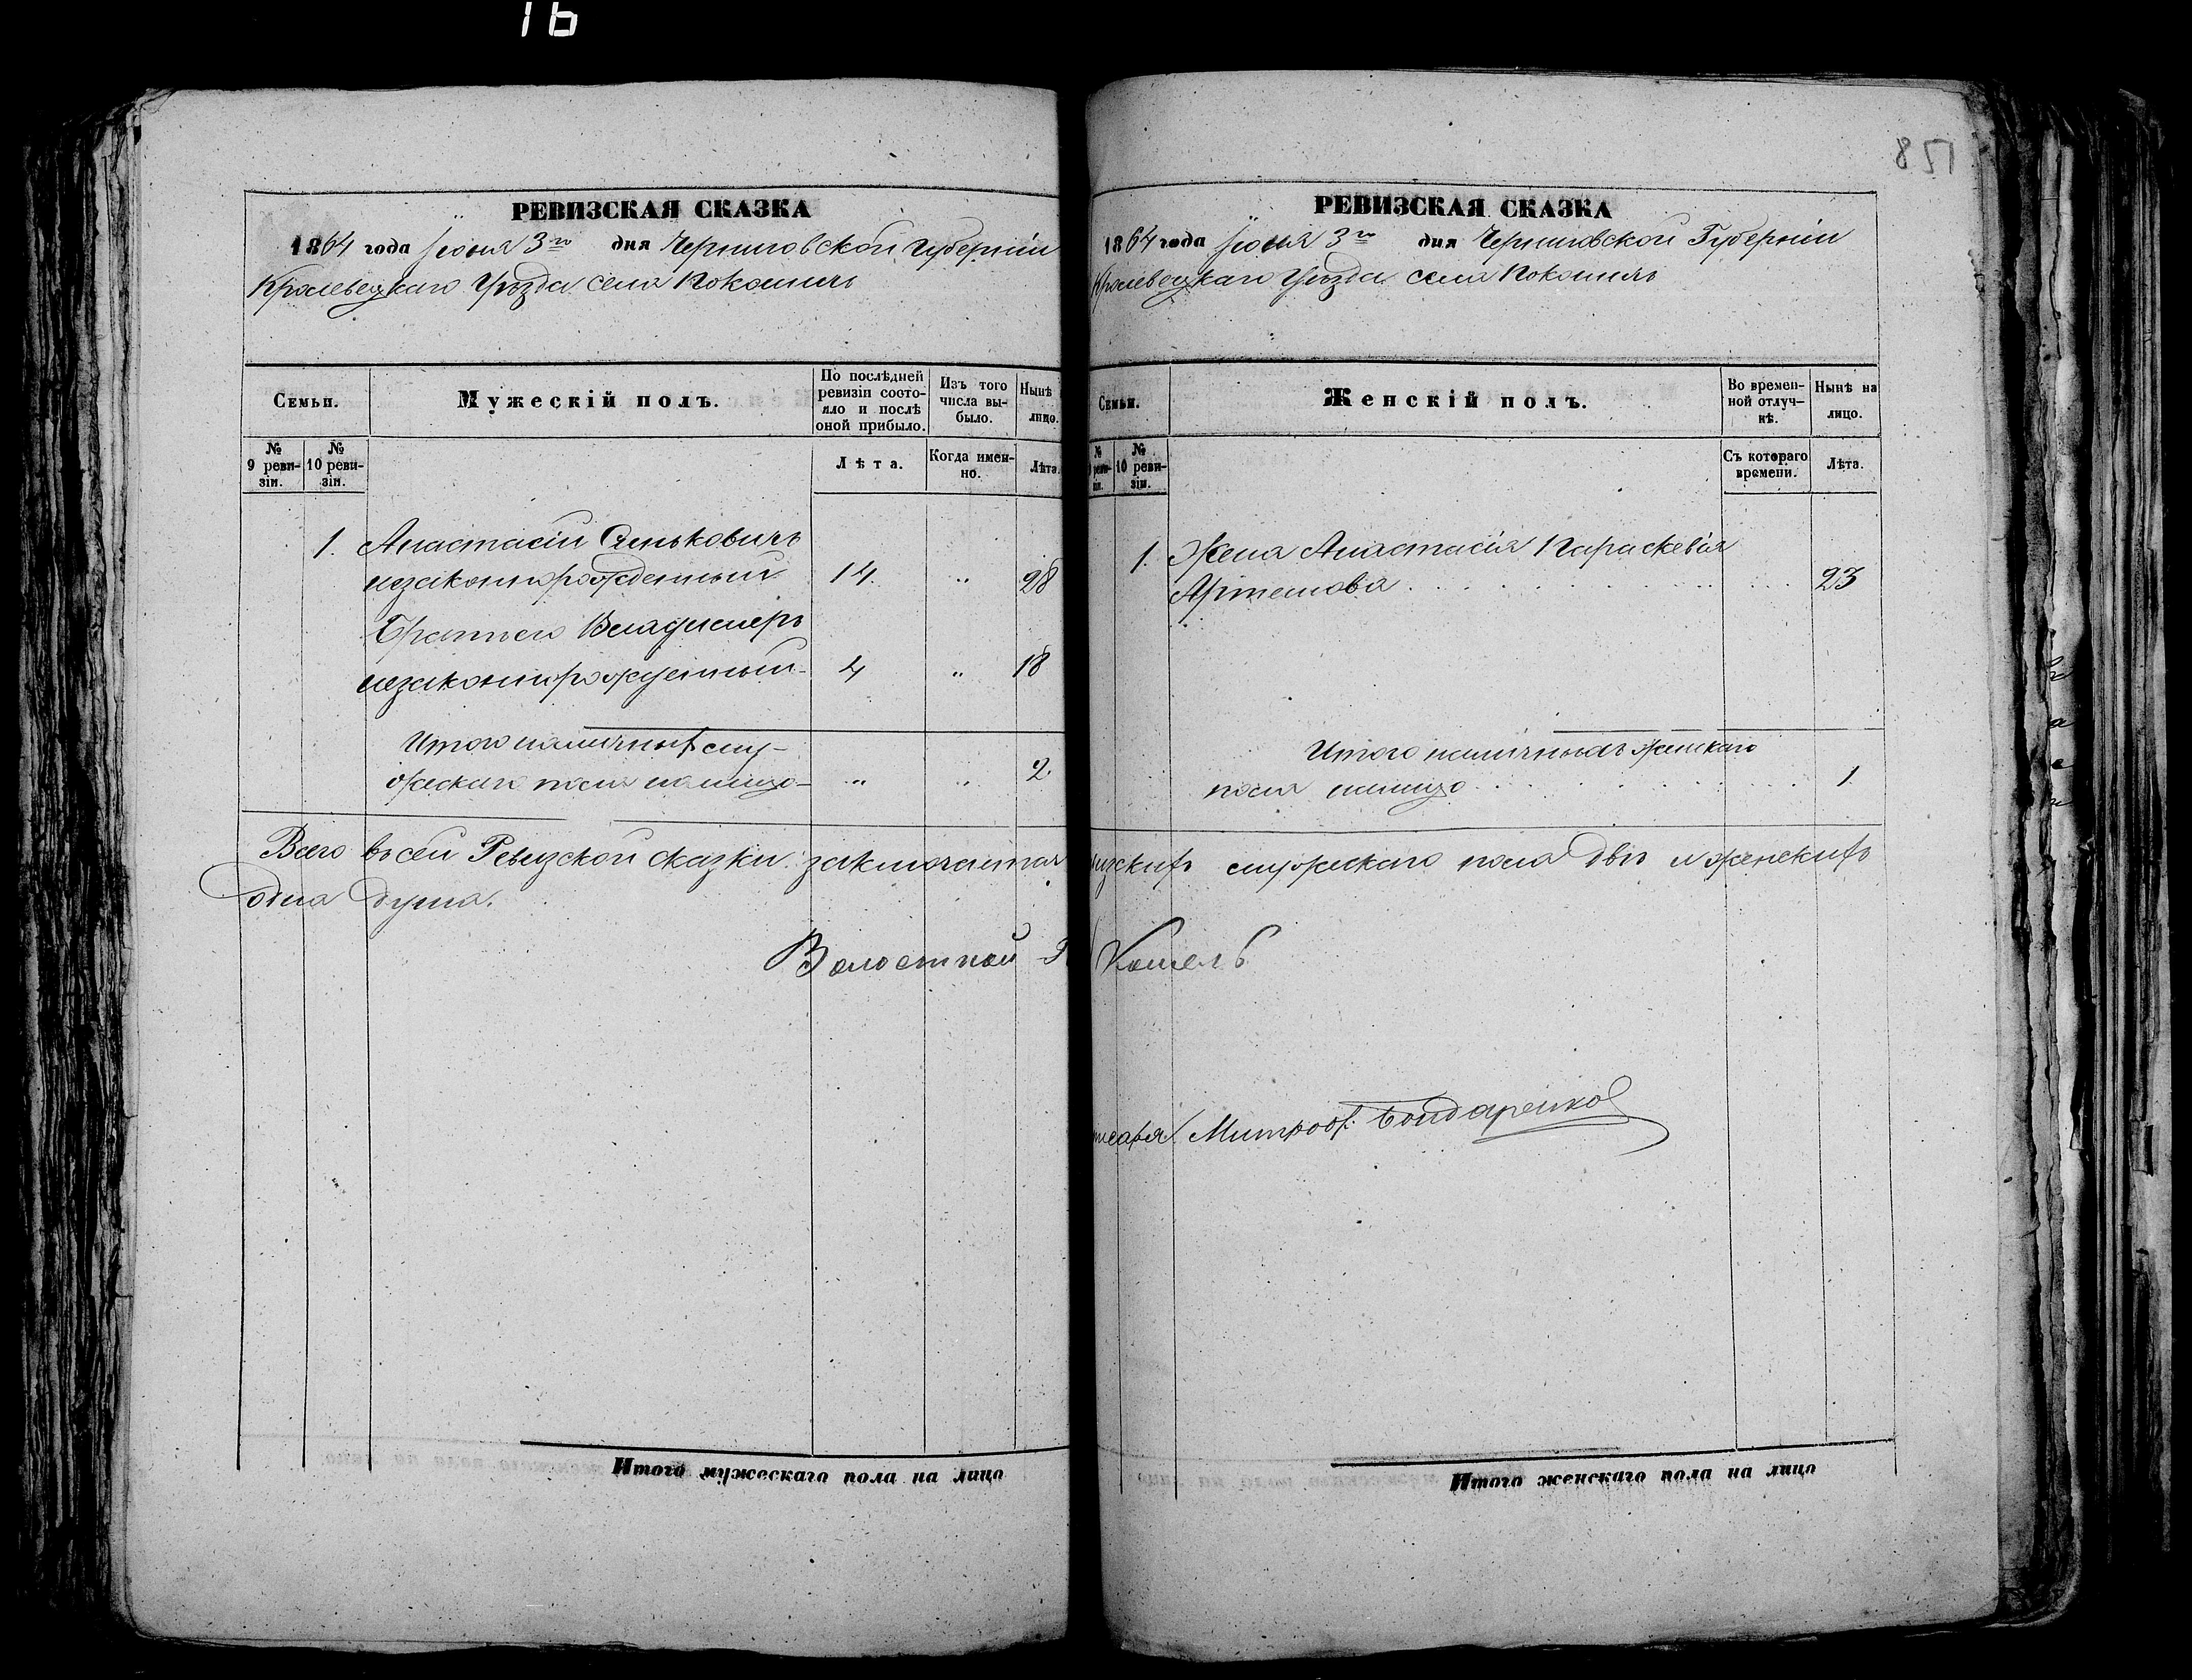 16
178
РЕВИЗСКАЯ СКАЗКА
1864 года Іюня 3го дня Черниговской Губерніи
Кролевецкаго Уѣзда села Покошичь
Семьи.
Мужескій полъ.
По послѣдней ревизіи состояло и послѣ оной прибыло.
Изъ того числа выбыло.
Нынѣ лицо.
№ 9 ревизіи.
№ 10 ревизіи.
Лѣта.
Когда именно.
Лѣта.
1. Анастасій Сеньковичъ
незаконнорожденный 14. " 28
Братъ его Владимеръ
незаконнорожденный 4 " 18
Итого наличныхъ му-
жескаго пола на лицо " " 2.
Всего въ сей Ревизской сказки заключается
одна душа.
Волостной
Итого мужескаго пола на лицо
РЕВИЗСКАЯ СКАЗКА
1864 года Іюня 3го дня Черниговской Губерніи
Кролевецкаго Уѣзда села Покошичь
Семьи.
Женскій полъ.
Во временной отлучкѣ.
Нынѣ на лицо.
№ 10 ревизіи.
Съ котораго времени.
Лѣта.
1. Жена Анастасія Параскевія
Артемова 23
Итого наличныхъ женскаго
пола налицо 1
мужескаго пола двѣ и женскихъ
Митроф. Бондаренко
Итого женскаго пола на лицо